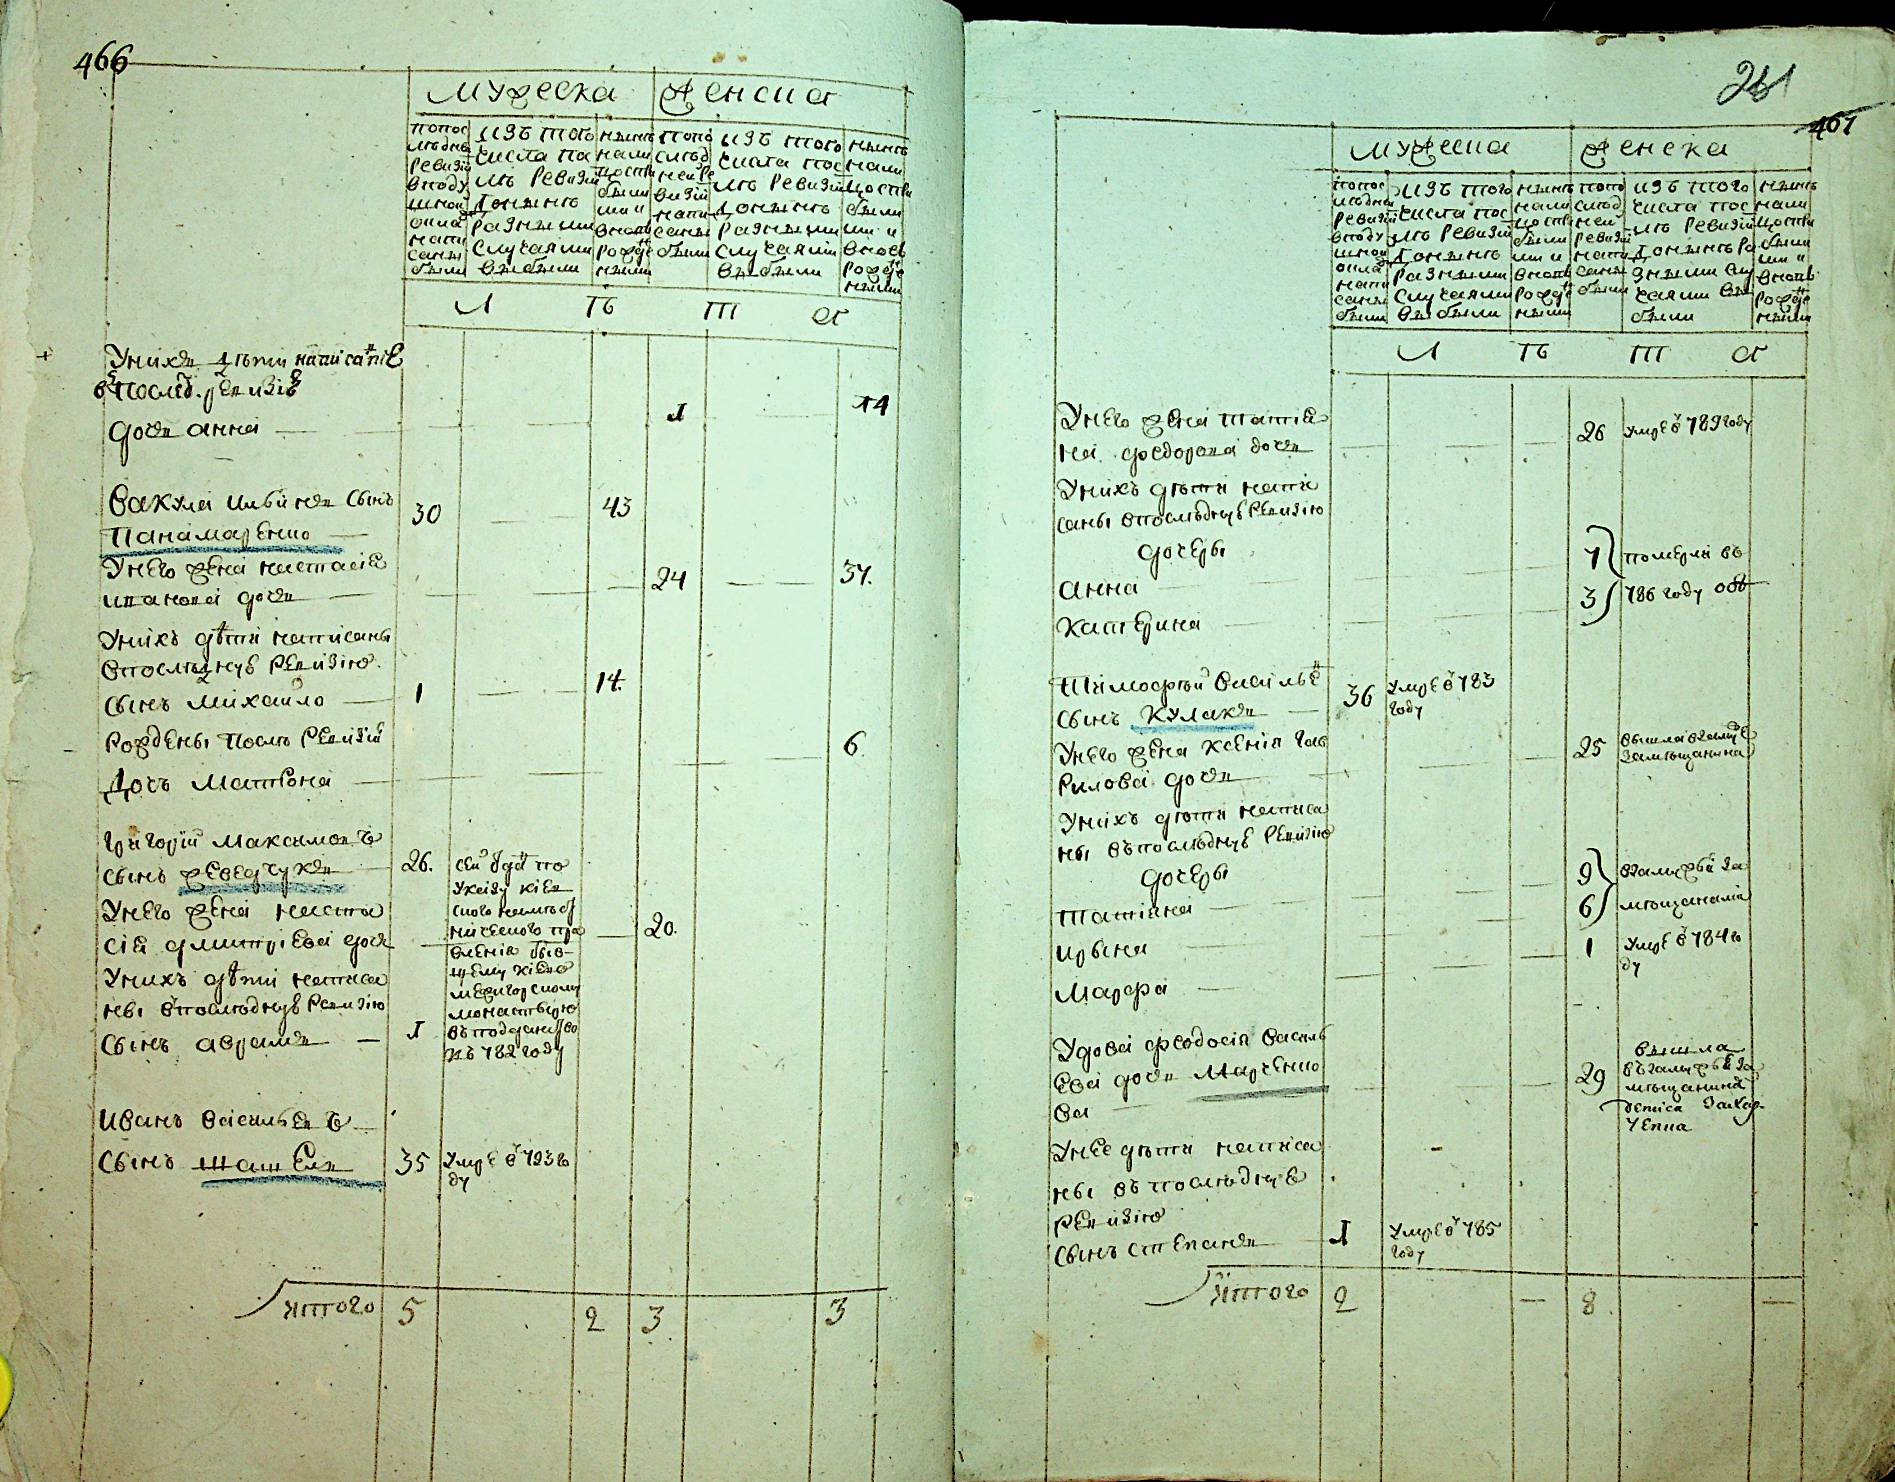 466
мужеска женска
попос
лѣдне
ревизіи
вподу
шной
окла
напи
саны
были
изъ того
числа по
лѣ ревизіи
донынѣ
разными
случаями
выбыли
нынѣ
нали
цо сти
были
ми и
вновь
рожде
ными
попо
слѣд
ней ре
визіи
напи
саны
были
изъ того
числа пос
лѣ ревизіи
донынѣ
разными
случаями
выбыли
нынѣ
нали
цости
были
ми и
вновь
рожде
ными
Л Т Ъ Т А
У них дѣти написаніе
в послѣд. ревизіе
дочь анна 1 14
Вакула ильинъ сынъ
Панамаренко 30 43
У него жена настасіе
иванова дочь 24 37.
У нихъ дѣти написаны
в послѣднуе ревизію.
сынъ михаило 1 14.
Рождены послѣ ревизіи
Дочь матрона 6.
Григорій максимовъ
сынъ жеведчукъ 26.
сей даны по
указу кіев
ского намѣст
ническаго пра
вленія быв
шему кіево
межигорскому
монастырю
въ подданство
въ 782 году
У него жена наста
сія дмитріева дочь 20.
У нихъ дѣти написа
ны в послѣднуе ревизію
сынъ аврамъ 1
Иванъ васильевъ
сынъ шашелъ 35 умре в 793 го
ду
итого 5 2 3 3
281
467
мужеска женска
попос
лѣдней
ревизіи
вподу
шной
окла
напи
саны
были
изъ того
числа пос
лѣ ревизіи
донынѣ
разными
случаями
выбыли
нынѣ
нали
цости
были
ми и
вновь
рожде
ными
попо
слѣд
ней
ревизіи
напи
саны
были
изъ того
числа пос
лѣ ревизіи
донынѣ ра
зными слу
чаями вы
были
нынѣ
нали
цости
были
ми и
вновь
рожде
ными
Л Т Ъ Т А
У него жена татіа
на федорова дочь 26 умре в 789 году
У нихъ дѣти напи
саны в послѣднуе ревизію
дочеры
анна 7 померли въ
катерина 3 786 году обѣ
Тимофѣй василье
сынъ кулакъ 36 умре в 783
году
У него жена ксенія гав
рилова дочь 25 вышла в замуже
за мѣщанина
У нихъ дѣти написа
ны въ послѣднуе ревизію
дочеры
татіана 9 в замужье за
ирына 6 мѣщанами
марфа 1 умре в 784 го
ду
Удова феодосія василь
ева дочь марченко
ва 29
вышла
въ замужье за
мѣщанина
дениса захар
ченка
У нее дѣти написа
ны въ послѣднуе
ревизію
сынъ степанъ 1 умре в 785
году
итого 2 — 8 —